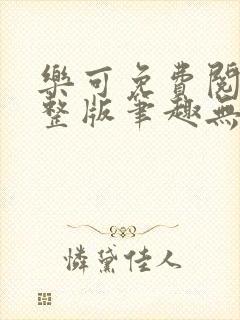 樂可免費閱
整版筆趣無
憐黛佳人